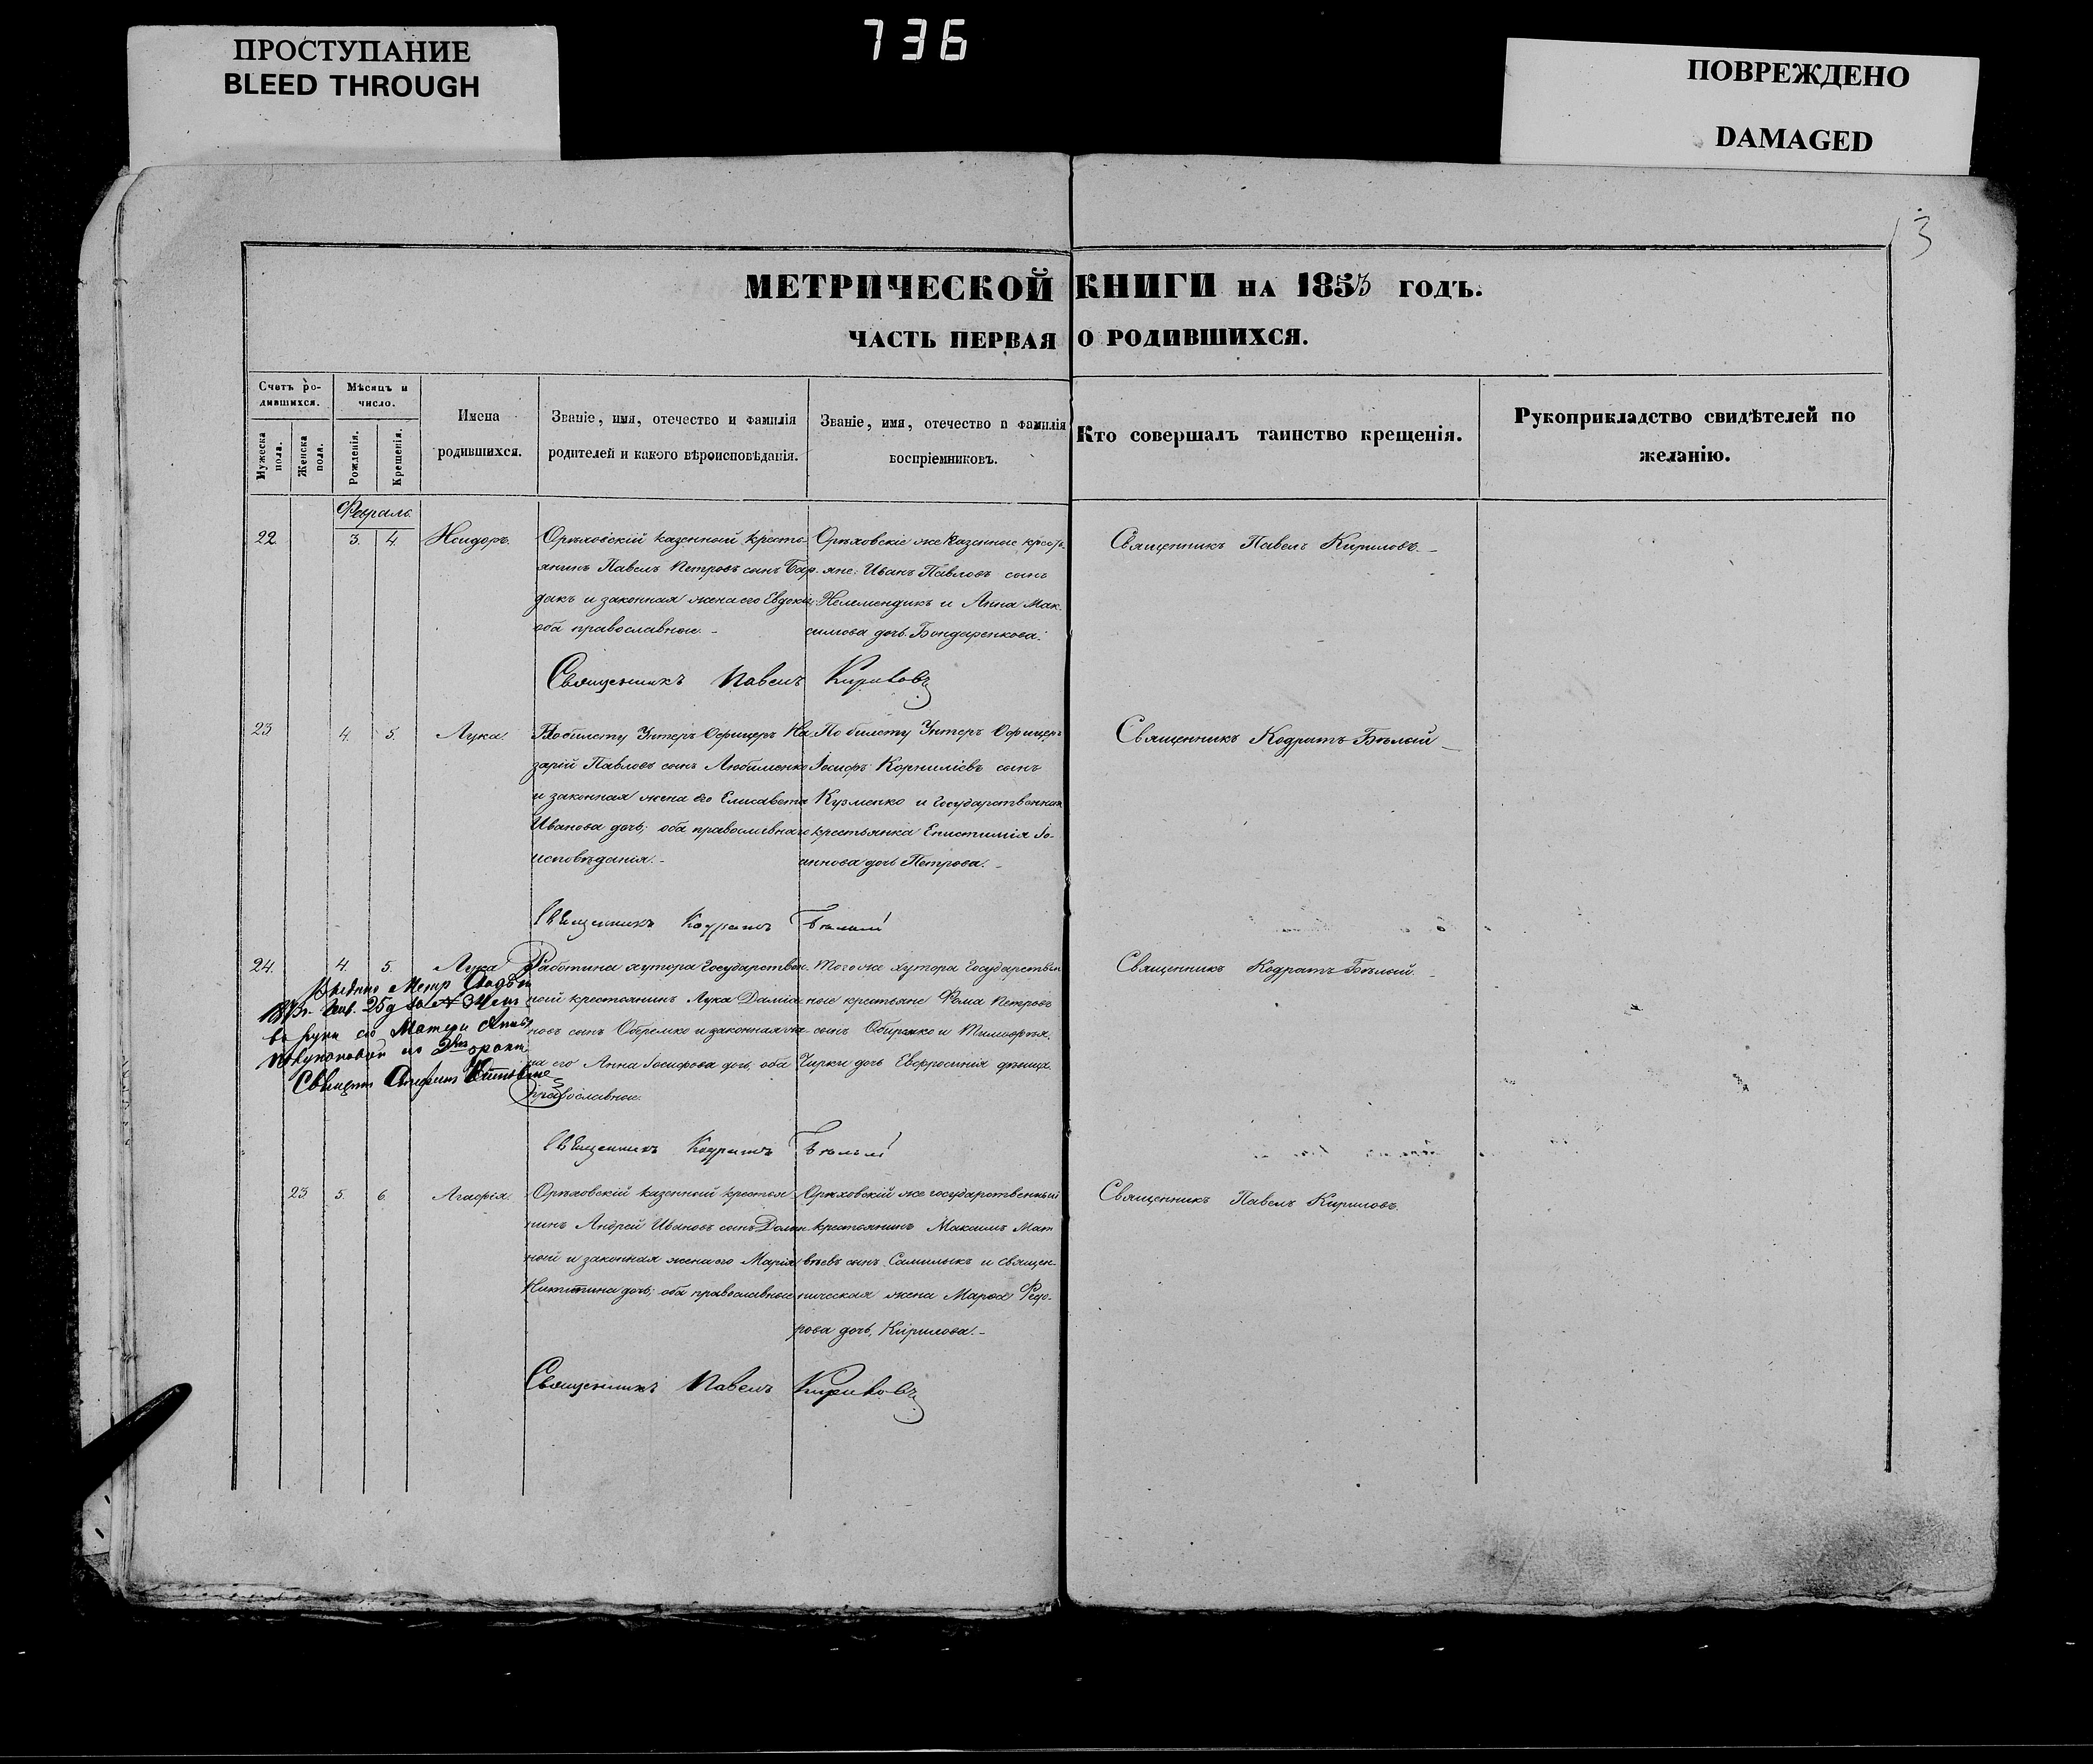 ПРОСТУПАНИЕ
BLEED THROUGH
736
ПОВРЕЖДЕНО
DAMAGED
13
МЕТРИЧЕСКОЙ КНИГИ НА 1853 ГОДЪ.
ЧАСТЬ ПЕРВАЯ О РОДИВШИХСЯ.
Счетъ ро-
дившихся.
Мужеска пола.
Женска пола.
Мѣсяцъ и
число.
Рожденія.
Крещенія.
Имена
родившихся.
Званіе, имя, отечество и фамилія
родителей и какого вѣроисповѣданія.
Званіе, имя, отечество и фамилія
воспріемниковъ.
Кто совершалъ таинство крещенія.
Рукоприкладство свидѣтелей по
желанію.
Февраль
22 3. 4. Исидоръ.
Орѣховскій казенный кресть-
янинъ Павелъ Петровъ сынъ Бар-
дакъ и законная жена его Евдокія
оба православные. -
Орѣховскіе же казенные кресть-
яне: Иванъ Павловъ сынъ
и Анна Мак-
симова дочь Бондаренкова.
Священникъ Павелъ Кириловъ. -
Священникъ Павелъ Кириловъ
23 4. 5. Лука.
По билету Унтеръ Офицеръ На-
зарій Павловъ сынъ Любименко
и законная жена его Елисавета
Иванова дочь; оба православнаго
исповѣданія. -
По билету Унтеръ Офицеръ
Іосифъ Корниліевъ сынъ
Кузменко и государственная
крестьянка Епистимія Іо-
аннова дочь Петрова. -
Священникъ Кодратъ Бѣлый -
Священникъ Кодратъ Бѣлый
24. 4. 5. Лука
Работина хутора государствен-
ный крестьянинъ Лука Даміа-
новъ сынъ Оберемко и законная же-
на его Анна Іосифова дочь, оба
православные.
Того же хутора государствен
ные крестьяне Фома Петровъ
сынъ Обиремко и Тимофея
дочь Евфросинія дѣвица.
Священникъ Кодратъ Бѣлый. -
25 д за № 34
въ руки его Матери Анны
Священникъ Кодратъ Бѣлый
23 5. 6. Агафія.
Орѣховскій казенный крестья
нинъ Андрей Ивановъ сынъ
ный и законная жена его Марія
Никитина дочь; оба православные
Орѣховскій же государственный
крестьянинъ Максимъ Мат
вѣевъ сынъ Самилыкъ и священ-
ническая жена Марѳа Федо-
рова дочь, Кирилова. -
Священникъ Павелъ Кириловъ.
Священникъ Павелъ Кириловъ